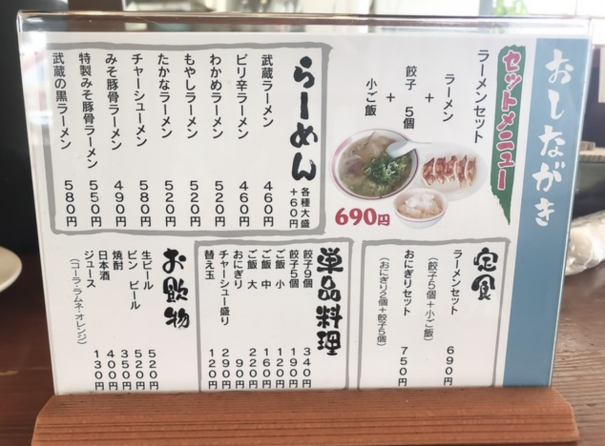 おしながき
セットメニュー
ラーメンセット
ラーメン
+
餃子 5個
+
小ご飯
690円
らーめん
各種大盛
+60円
武蔵ラーメン 460円
ピリ辛ラーメン 460円
わかめラーメン 520円
もやしラーメン 520円
たかなラーメン 520円
チャーシューメン 580円
みそ豚骨ラーメン 490円
特製みそ豚骨ラーメン 550円
武蔵の黒ラーメン 580円
定食
ラーメンセット 690円
(餃子5個+小ご飯)
おにぎりセット 750円
(おにぎり2個+餃子5個)
単品料理
餃子9個 340円
餃子5個 190円
ご飯 小 120円
ご飯 中 160円
ご飯 大 220円
おにぎり 90円
チャーシュー盛り 290円
替え玉 120円
お飲物
生ビール 520円
ビンビール 520円
焼酎 350円
日本酒 400円
ジュース 130円
(コーラ・ラムネ・オレンジ)